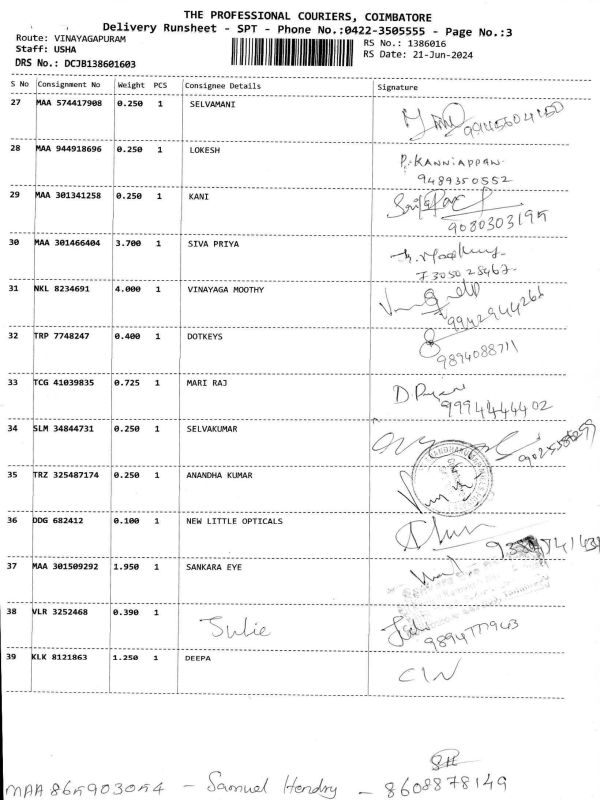 THE PROFESSIONAL COURIERS, COIMBATORE
Delivery Runsheet - SPT - Phone No.:0422-3505555 - Page No.:3
Route: VINAYAGAPURAM RS No.: 1386016
Staff: USHA RS Date: 21-Jun-2024
DRS No.: DCJB138601603
S No Consignment No Weight PCS Consignee Details Signature
27 MAA 574417908 0.250 1 SELVAMANI
28 MAA 944918696 0.250 1 LOKESH P. KANNIAPPAN
9489350552
29 MAA 301341258 0.250 1 KANI
9080303195
30 MAA 301466404 3.700 1 SIVA PRIYA
7305028467
31 NKL 8234691 4.000 1 VINAYAGA MOOTHY
9942944261
32 TRP 7748247 0.400 1 DOTKEYS
9894088711
33 TCG 41039835 0.725 1 MARI RAJ
9994444402
34 SLM 34844731 0.250 1 SELVAKUMAR
35 TRZ 325487174 0.250 1 ANANDHA KUMAR
36 DDG 682412 0.100 1 NEW LITTLE OPTICALS
37 MAA 301509292 1.950 1 SANKARA EYE
38 VLR 3252468 0.390 1 Julie
9894777943
39 KLK 8121863 1.250 1 DEEPA
MAA 865903054 - Samuel Hendry - 8608878149